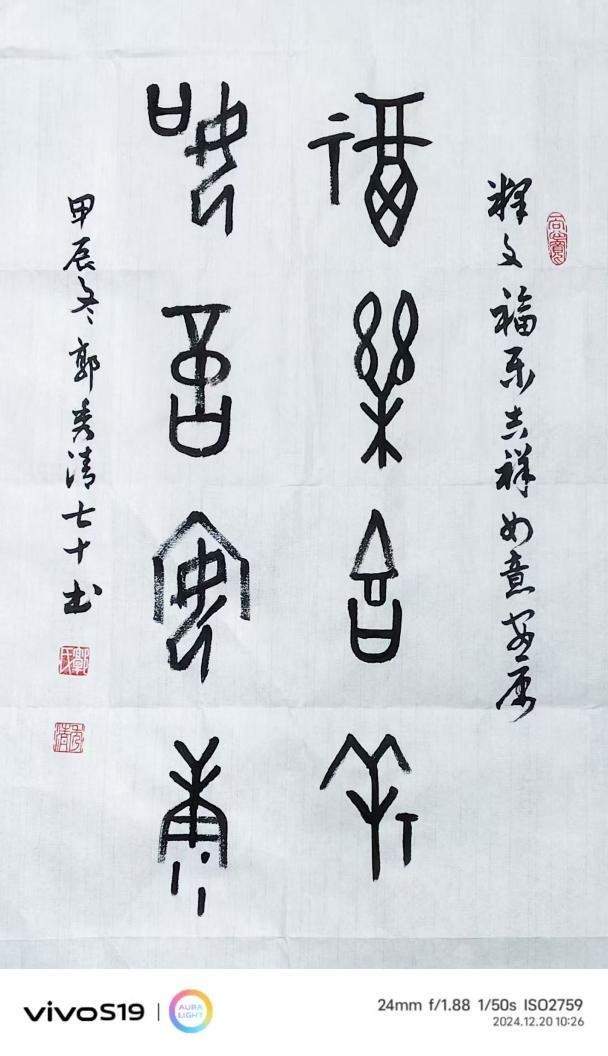 释文福乐吉祥如意安康
福乐吉祥
如意安康
甲辰冬郭秀清七十书
vivo S19 | AURA LIGHT
24mm f/1.88 1/50s ISO2759
2024.12.20 10:26